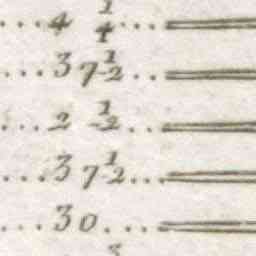 ...4 1/4...
...3 7 1/2..
...2 1/2...
...3 7 1/2...
...3 0....